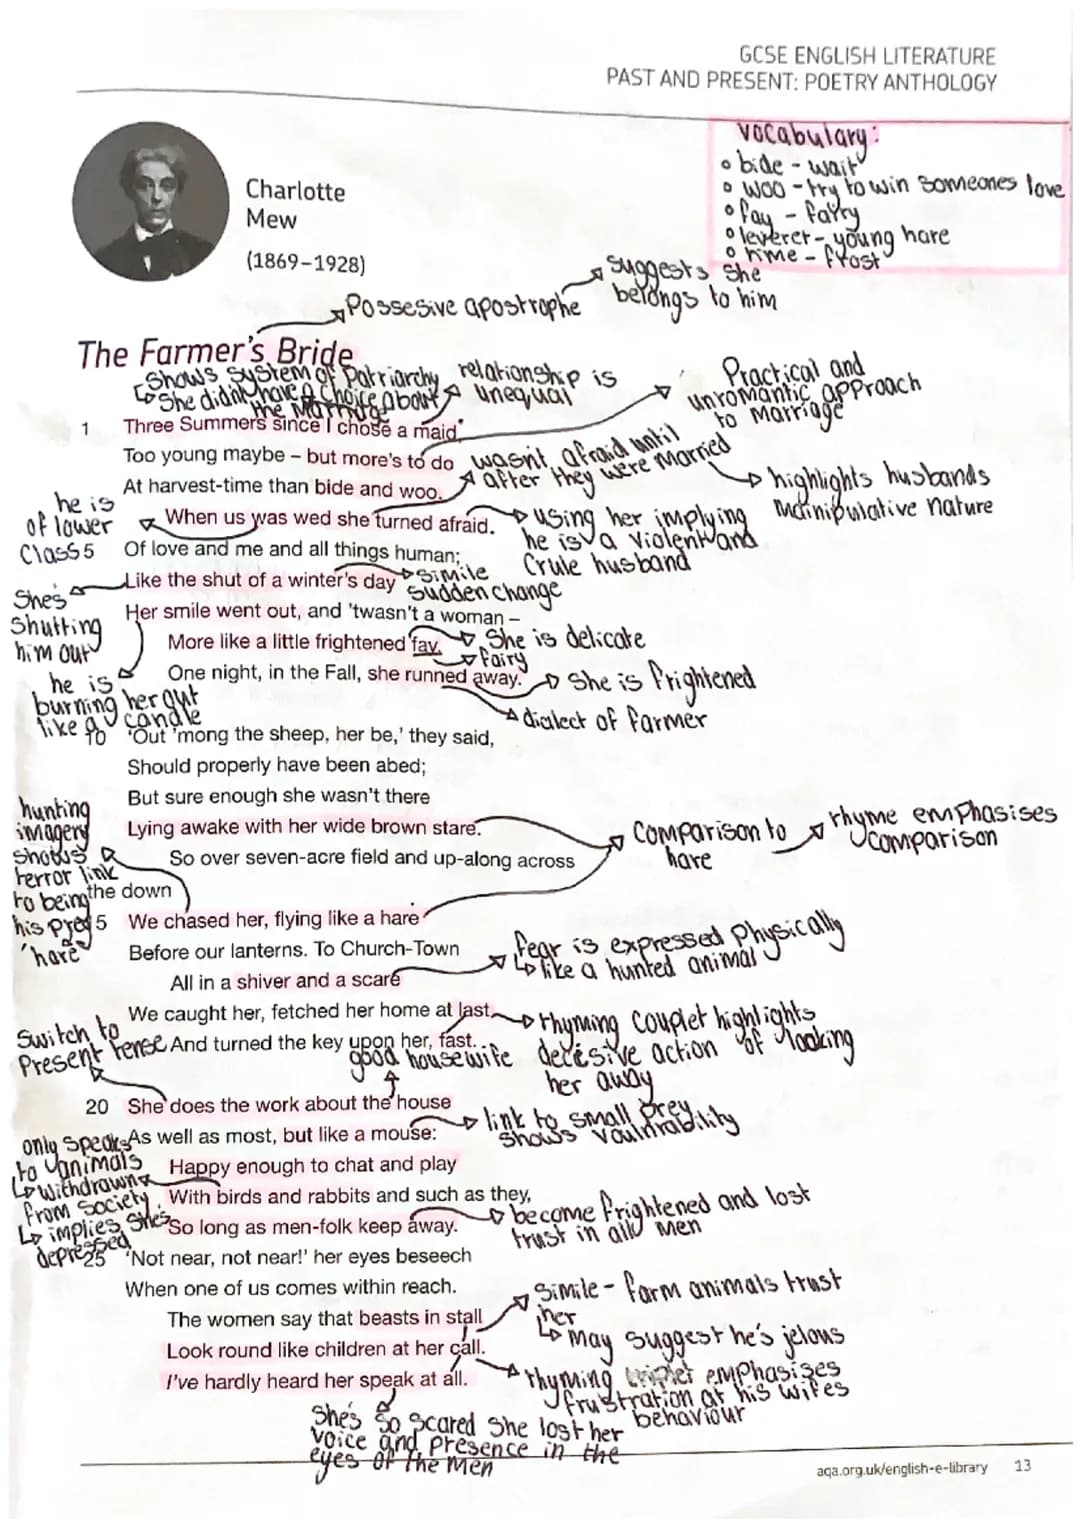 GCSE ENGLISH LITERATURE
PAST AND PRESENT: POETRY ANTHOLOGY
Vocabulary:
bide - wait
woo - try to win someones love
fay - fairy
leveret - young hare
rime - frost
Charlotte
Mew
(1869–1928)
Possesive apostrophe
suggests she
belongs to him
The Farmer's Bride
Shows system of Patriarchy
She didn't have a choice about
the Marriage
relationship is
unequal
Practical and
unromantic approach
to Marriage
1 Three Summers since I chose a maid,
Too young maybe – but more's to do
At harvest-time than bide and woo.
wasn't afraid until
after they were Married
highlights husbands
Mainipulative nature
he is
of lower
Class
When us was wed she turned afraid.
using her implying
he is a violent and
Crule husband
5 Of love and me and all things human;
Like the shut of a winter's day
Simile
Sudden change
She's
Shutting
him out
Her smile went out, and 'twasn't a woman –
More like a little frightened fay.
She is delicate
fairy
One night, in the Fall, she runned away.
She is frightened
dialect of farmer
he is
burning her out
like a candle
10 'Out 'mong the sheep, her be,' they said,
Should properly have been abed;
But sure enough she wasn't there
Lying awake with her wide brown stare.
So over seven-acre field and up-along across
the down
hunting
imagery
shows
terror link
to being
his prey
'hare'
Comparison to
hare
rhyme emphasises
comparison
15 We chased her, flying like a hare
Before our lanterns. To Church-Town
All in a shiver and a scare
fear is expressed physically
like a hunted animal
We caught her, fetched her home at last
And turned the key upon her, fast.
Switch to
Present tense
good housewife
rhyming couplet highlights
decesive action of looking
her away
20 She does the work about the house
As well as most, but like a mouse:
link to small prey
shows vaulnrability
Happy enough to chat and play
With birds and rabbits and such as they,
So long as men-folk keep away.
only speaks
to animals
withdrawn
from society
implies she's
depressed
become frightened and lost
trust in all men
25 'Not near, not near!' her eyes beseech
When one of us comes within reach.
The women say that beasts in stall
Look round like children at her call.
I've hardly heard her speak at all.
Simile - farm animals trust
her
May suggest he's jelous
rhyming triplet emphasizes
frustration at his wifes
behaviour
She's so scared she lost her
voice and presence in the
eyes of the men
aqa.org.uk/english-e-library 13